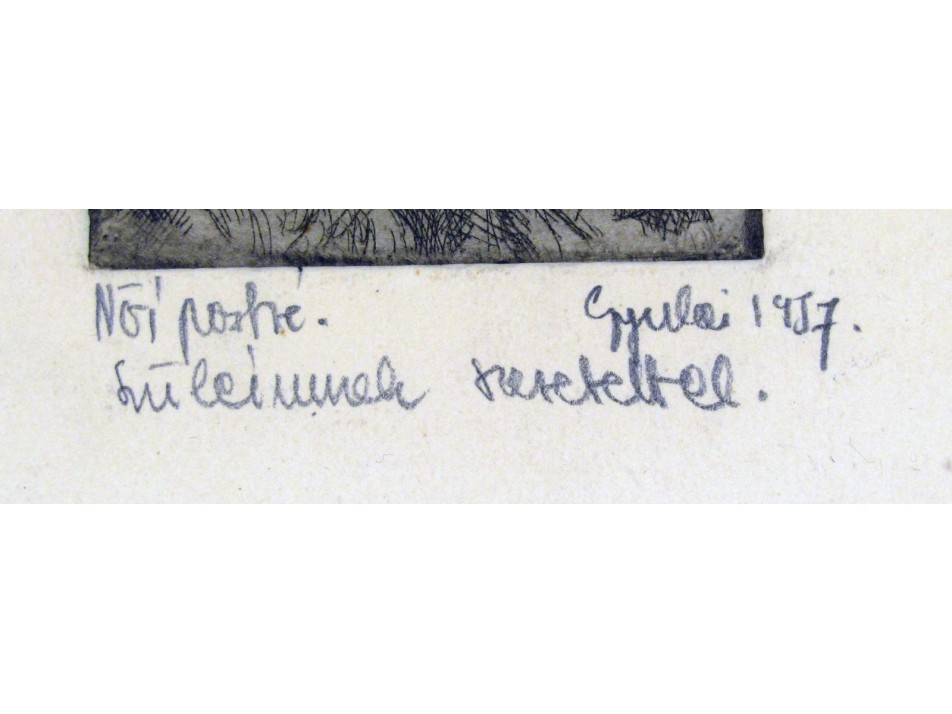 Női portré. Gyulai 1957.
Szüleimnek szeretettel.